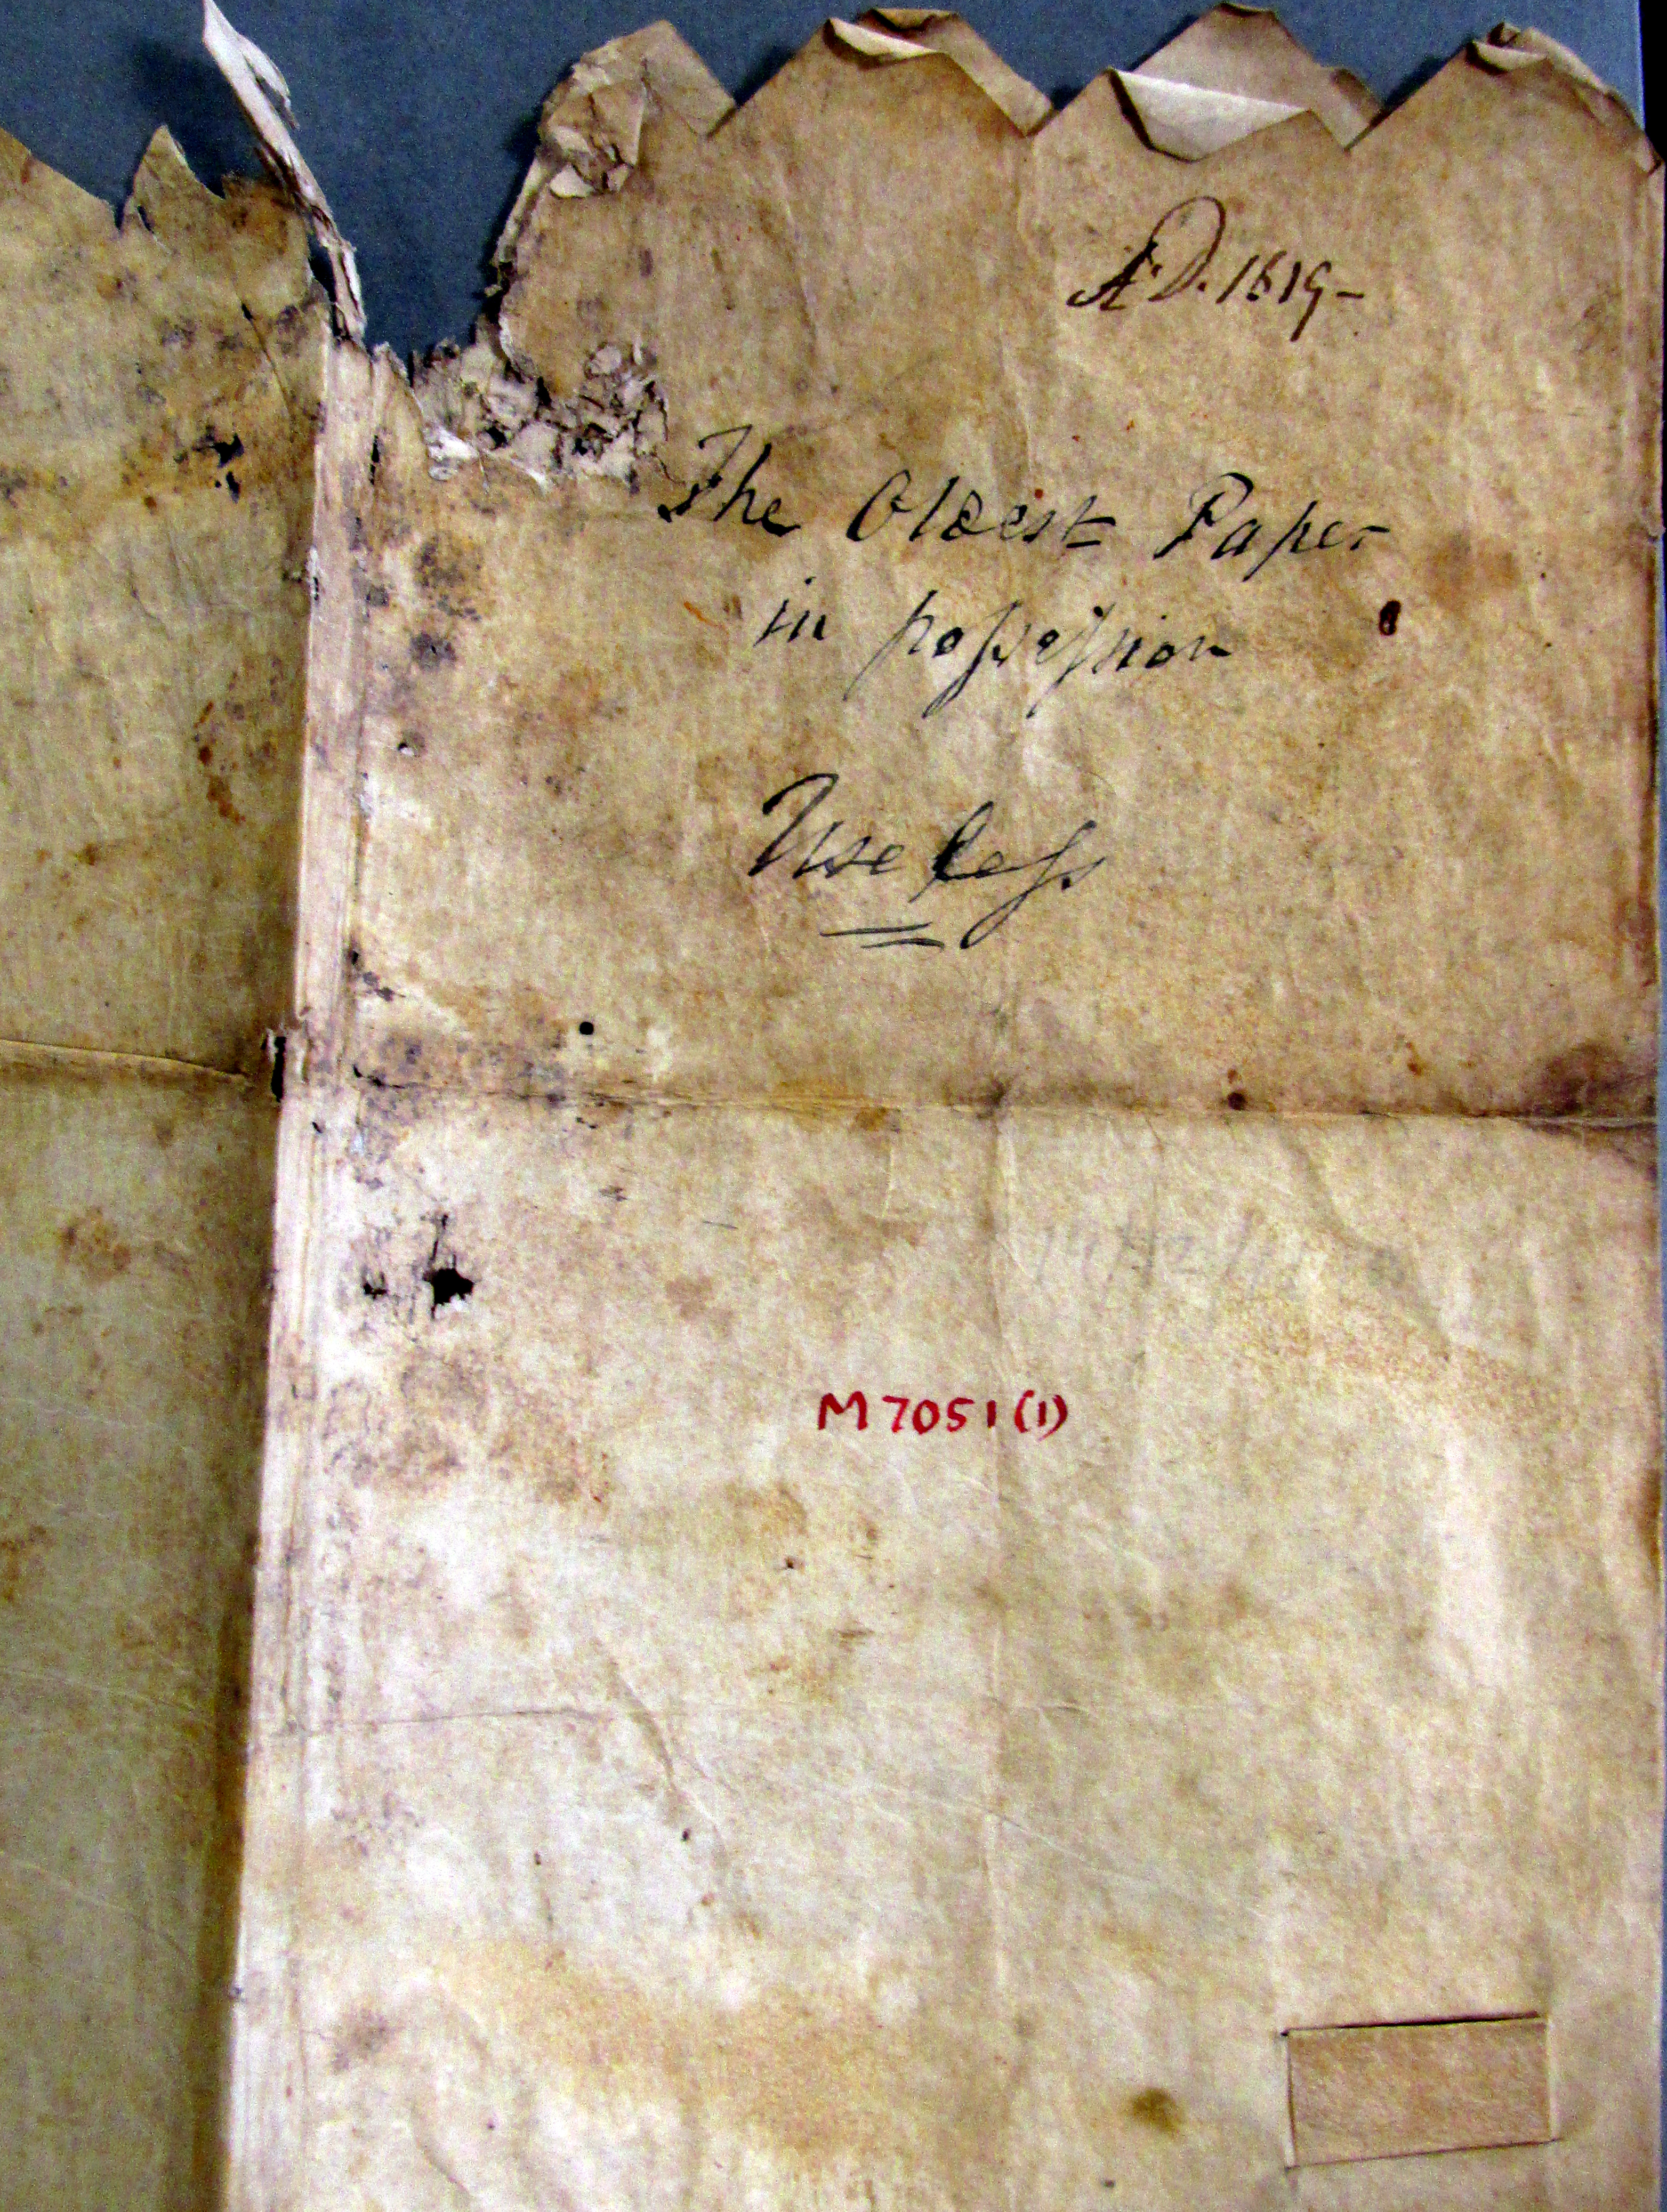 A.D. 1619-
The Oldest Paper
in poſseſsion
Useleſs
M 7051 (1)